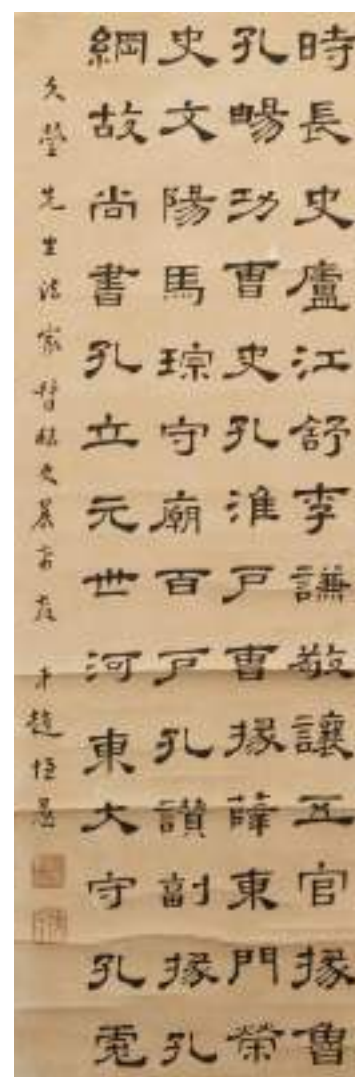 時長史廬江舒李謙敬讓五官掾魯
孔暢功曹史孔淮戶曹掾薛東門榮
史文陽馬琮守廟百戶孔讚副掾孔
綱故尚書孔立元世河東大守孔彪
瑩先生法家 臨史晨 弟趙恆惖